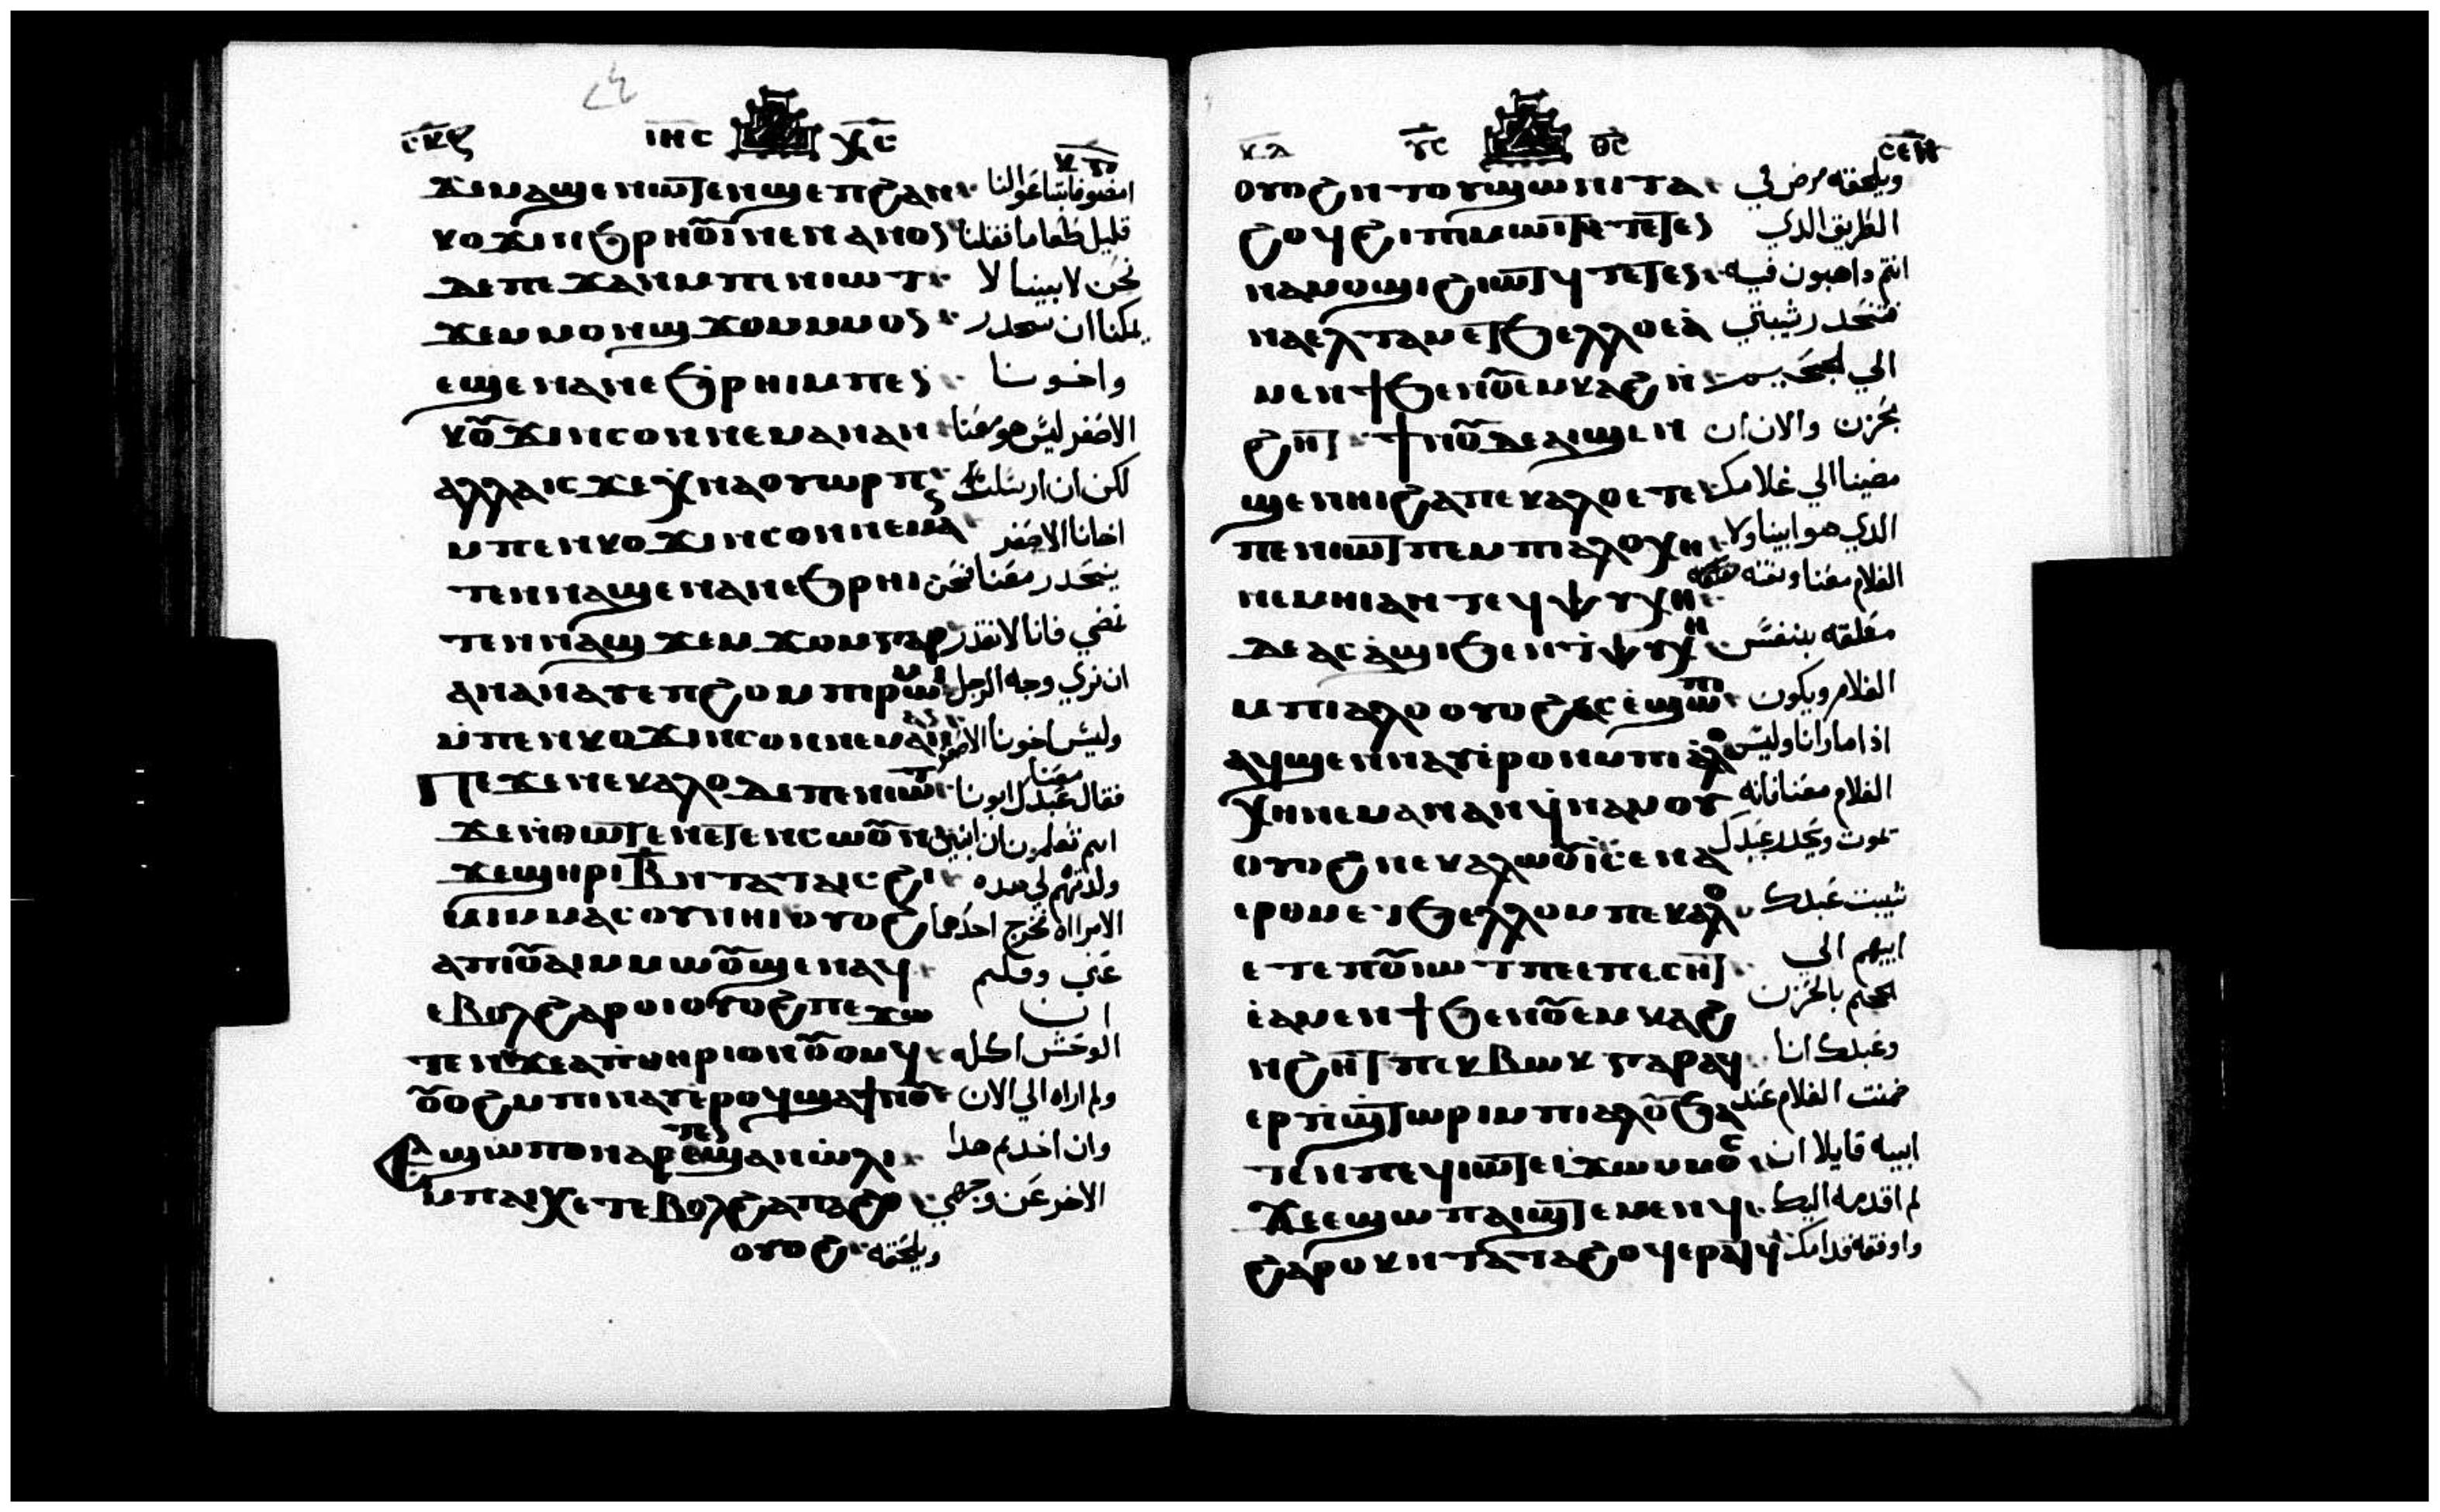 ⲓⲏⲥ ⲭⲥ
ϫⲉⲙⲁϣⲉⲛⲱⲧⲉⲛϣⲉⲡϩⲁⲛ امضوا فابتاعوا لنا
ⲕⲟⲩϫⲓⲛϧⲣⲏⲟⲩⲓⲛⲉⲛⲁⲛⲟⲛ قليل طعاما فقلنا
ⲇⲉⲡⲉϫⲁⲛⲙⲡⲓⲛⲓⲱⲧ نحن لابينا لا
ϫⲉⲙⲙⲟⲛϣϫⲟⲙⲙⲙⲟⲛ يمكنا ان ننحدر
ⲉϣⲉⲛⲁⲛⲉϧⲣⲏⲓⲙⲡⲉⲛ واخونا
ⲕⲟⲩϫⲓⲛⲥⲟⲛⲛⲉⲙⲁⲛⲁⲛ الاصغر ليس هو معنا
ⲁⲗⲗⲁⲓⲥϫⲉⲭⲛⲁⲟⲩⲱⲣⲡ لكن ان ارسلت
ⲙⲡⲉⲛⲕⲟⲩϫⲓⲛⲥⲟⲛⲛⲉⲙⲁ اخانا الاصغر
ⲧⲉⲛⲛⲁϣⲉⲛⲁⲛⲉϧⲣⲏⲓ ينحدر معنا نحن
ⲧⲉⲛⲛⲁϣϫⲉⲙϫⲟⲙⲅⲁⲣ نمضي فانا لا نقدر
ⲁⲛⲁⲛⲁⲩⲉⲡϩⲟⲙⲡⲓⲣⲱⲙⲓ ان نري وجه الرجل
ⲙⲡⲉⲛⲕⲟⲩϫⲓⲛⲥⲟⲛⲛⲉⲙⲁⲛⲁⲛ وليس اخونا الاصغر معنا
ⲡⲉϫⲉⲡⲉⲕⲁⲗⲟⲩⲇⲉⲡⲉⲛⲓⲱⲧ فقال عبدك ابونا
ϫⲉⲛⲑⲱⲧⲉⲛⲉⲧⲉⲛⲥⲱⲟⲩⲛ انتم تعلمون ان ابنين
ϫⲉϣⲏⲣⲓⲃⲛⲧⲁⲧⲁⲓⲥϩⲓ ولدتهم لي هده
ⲙⲓⲙⲙⲁⲥⲟⲩⲛⲏⲓⲟⲩⲟϩ الامراه فخرج احدهما
ⲁⲡⲓⲟⲩⲁⲓⲙⲙⲱⲟⲩϣⲉⲛⲁϥ عني وقلتم
ⲉⲃⲟⲗϩⲁⲣⲟⲓⲟⲩⲟϩⲡⲉϫⲱ ان
ⲧⲉⲛϫⲉⲁⲡⲓⲑⲏⲣⲓⲟⲛⲟⲩⲟⲙϥ الوحش اكله
ⲟⲩⲟϩⲙⲡⲓⲛⲁⲩⲉⲣⲟϥϣⲁϯⲛⲟⲩ ولم اراه الي الان
ⲉϣⲱⲡⲟⲛⲁⲣⲉⲧⲉⲛϣⲁⲛⲱⲗⲓ وان اخدتم هدا
ⲙⲡⲁⲓⲭⲉⲧⲉⲃⲟⲗϩⲁⲡⲁϩⲟ الاخر عن وجهي
ⲟⲩⲟϩ ويلحقه
ⲕⲗ ⲩⲥ ⲑⲥ
ⲟⲩⲟϩⲛⲧⲟⲩϣⲱⲛⲓⲧⲁ ويلحقه مرض في
ϩⲟϥϩⲓⲡⲙⲱⲓⲧⲉⲧⲉⲧⲉⲛ الطريق الدي
ⲛⲁⲙⲟϣⲓϩⲓⲱⲧϥⲧⲉⲧⲉⲛ انتم داهبون فيه
ⲛⲁⲉⲗⲧⲁⲙⲉⲧϧⲉⲗⲗⲟⲉⲁ فتنحدر شيبتي
ⲙⲉⲛϯϧⲉⲛⲟⲩⲉⲙⲕⲁϩⲛ الي الجحيم
ϩⲏⲧ ϯⲛⲟⲩⲇⲉⲁⲓϣⲁⲛ بحزن والان ان
ϣⲉⲛⲏⲓϩⲁⲡⲉⲕⲁⲗⲟⲩⲉⲧⲉ مضينا الي غلامك
ⲡⲉⲛⲓⲱⲧⲡⲉⲙⲡⲓⲁⲗⲟⲩⲭⲏ الدي هو ابينا ولا
ⲛⲉⲙⲏⲓⲁⲛⲧⲉϥⲯⲩⲭⲏ الغلام معنا ونفسه
ⲇⲉⲁⲥⲁϣⲓϧⲉⲛⲧⲯⲩⲭⲏ معلقه بنفس
ⲙⲡⲓⲁⲗⲟⲩⲟⲩⲟϩⲉⲥⲉϣⲱⲡⲓ الغلام ويكون
ⲁϥϣⲉⲛⲛⲁⲩⲉⲣⲟⲛⲙⲡⲓⲁⲗⲟⲩ اذا ما رانا وليس
ⲭⲏⲛⲉⲙⲁⲛⲁⲛϥⲛⲁⲙⲟⲩ الغلام معنا فانه
ⲟⲩⲟϩⲛⲉⲕⲁⲗⲱⲟⲩⲓⲥⲉⲛⲁ يموت ويحدر عبدك
ⲉⲣⲟⲙⲉⲧϧⲉⲗⲗⲟⲙⲡⲉⲕⲁⲗⲟⲩ شيبت عبدك
ⲉⲧⲉⲡⲟⲩⲓⲱⲧⲡⲉⲉⲡⲉⲥⲏⲧ ابيهم الي
ⲉⲁⲙⲉⲛϯϧⲉⲛⲟⲩⲉⲙⲕⲁϩ الجحيم بالحزن
ⲛϩⲏⲧⲡⲉⲕⲃⲱⲕⲅⲁⲣⲁϥ وعبدك انا
ⲉⲣⲡϣⲧⲱⲣⲓⲙⲡⲓⲁⲗⲟⲩϧⲁ ضمنت الغلام عند
ⲧⲉⲛⲡⲉϥⲓⲱⲧⲉⲓϫⲱⲙⲙⲟⲥ ابيه قايلا ان
ϫⲉⲉϣⲱⲡⲁⲓϣⲧⲉⲙⲉⲛϥ لم اقدمه اليك
ϩⲁⲣⲟⲕⲛⲧⲁⲧⲁϩⲟϥⲉⲣⲁⲧϥ واوقفه قدامك